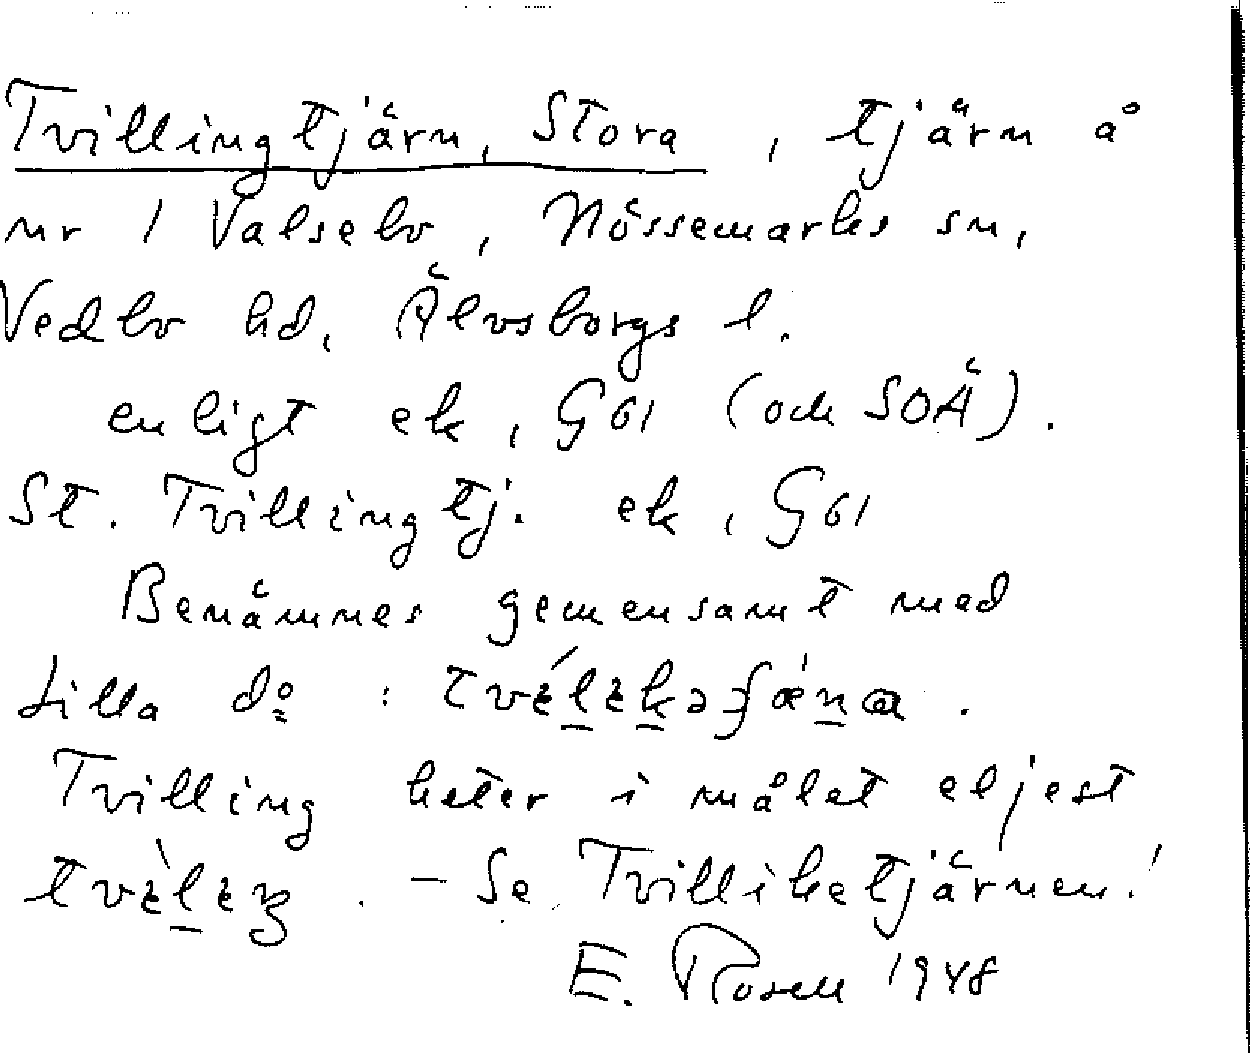 Tvillingtjärn, Stora, tjärn å
nr 1 Valsebo, Nössemarks sn,
Vedbo hd, Älvsborgs l.
enligt ek, G61 (och SOÄ).
St. Tvillingtj. ek, G61
Benämnes gemensamt med
Lilla do :
Tvilling heter i målet eljest
— Se Tvilliketjärnen!
E. Rosell 1948